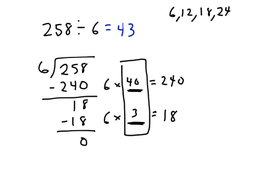 6, 12, 18, 24
258 ÷ 6 = 43
6)258
- 240 6 × 40 = 240
18
- 18 6 × 3 = 18
0